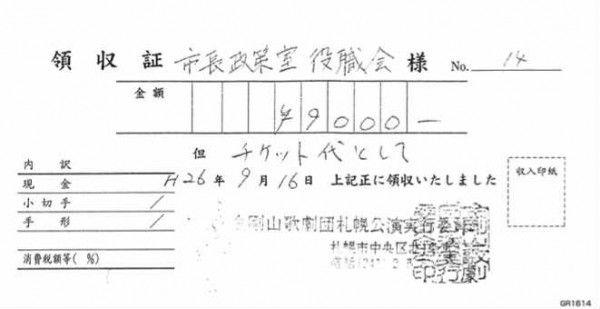 領収証 市長政策室 役職会 様 No. 14
金額 ¥9000-
但 チケット代として
内訳
現金
小切手 /
手形 /
消費税額等(%)
H26年9月16日 上記正に領収いたしました
収入印紙
金剛山歌劇団札幌公演実行委
札幌市中央区
GR1614